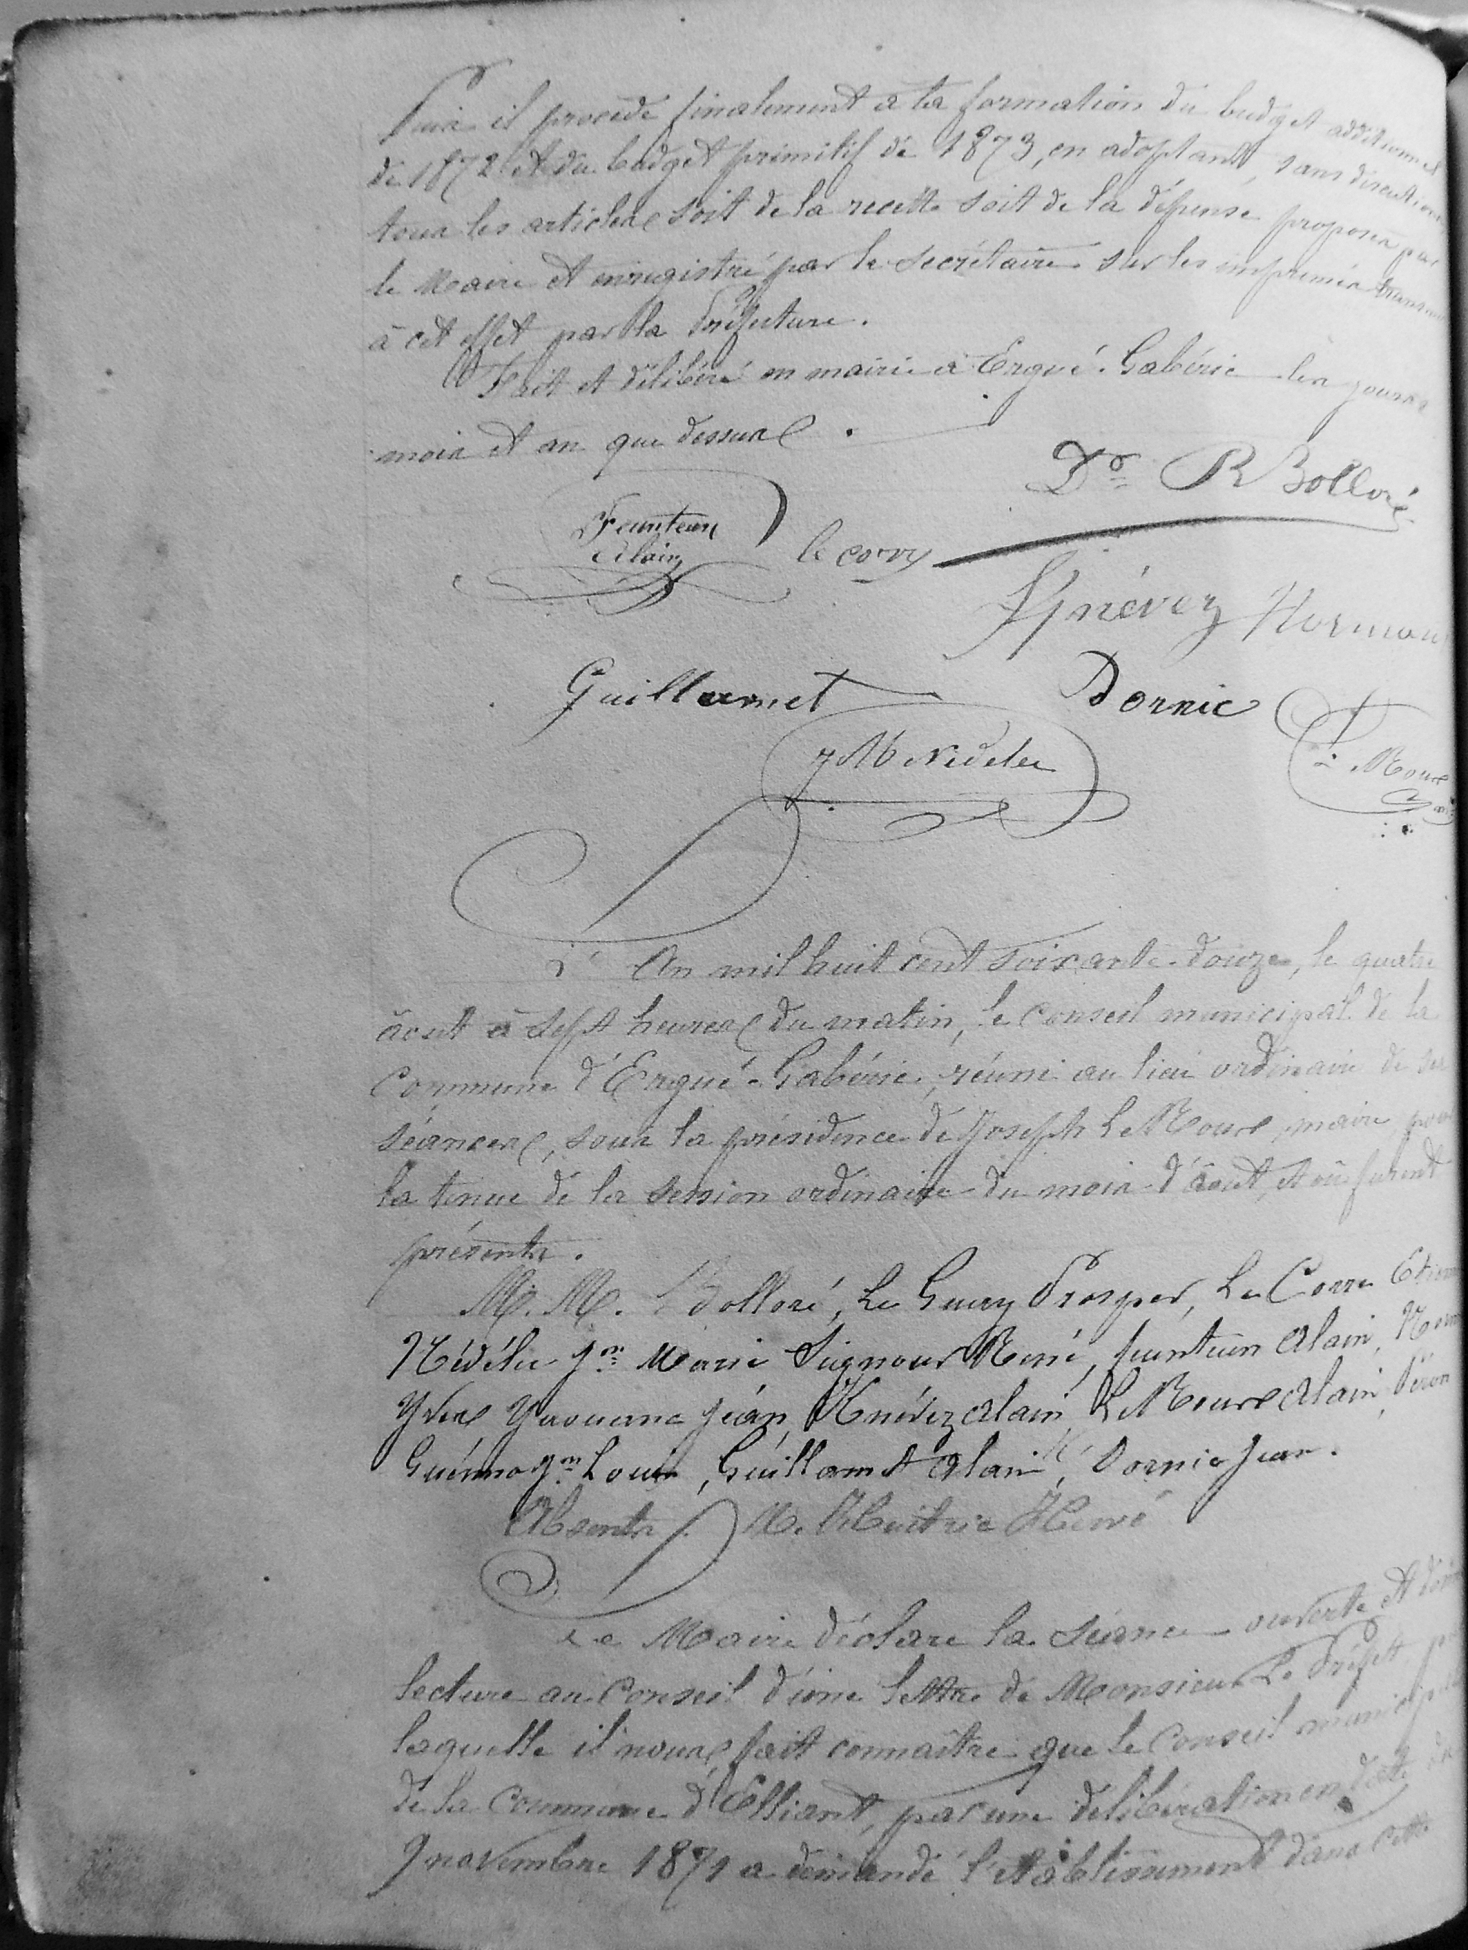 Puis il procède finalement à la formation du budget additionnel
de 1872 et du budget primitif de 1873, en adoptant, sans discution
tous les articles soit de la recette soit de la dépense proposés par
le Maire et enregistré par le secrétaire sur les imprimés
à cet effet par la Préfecture.
Fait et délibéré en mairie à Ergué-Gabéric les jours
mois et an que dessus.
Dr R Bolloré
Feunteun
Alain
le corre
Knévez Normant
Guillamet Dornic
J M Nédelec
Le Mour
L'An mil huit cent soixante-douze, le quatre
août à sept heures du matin, le Conseil municipal de la
Commune d'Ergué-Gabéric, réuni au lieu ordinaire de ses
séances, sous la présidence de Joseph Le Roux, maire, pour
la tenue de la session ordinaire du mois d'août, et où furent
présents.
M. M. Bolloré, Le Guay Prosper, Le Corre
Nédélec Jn Marie Seignour René, feunteun Alain,
Yves Yaouanc jean, Knévez Alain, Le Roux Alain,
Guenno Jn Louis, Guillamet Alain, Dornic Jean.
Absents M. Hervé
Le Maire déclare la séance ouverte et
lecture au Conseil d'une lettre de Monsieur Le Préfet,
laquelle il nous fait connaître que le Conseil municipal
de la Commune d'Elliant, par une délibération en date du
9 novembre 1871 a demandé l'établissement dans cette